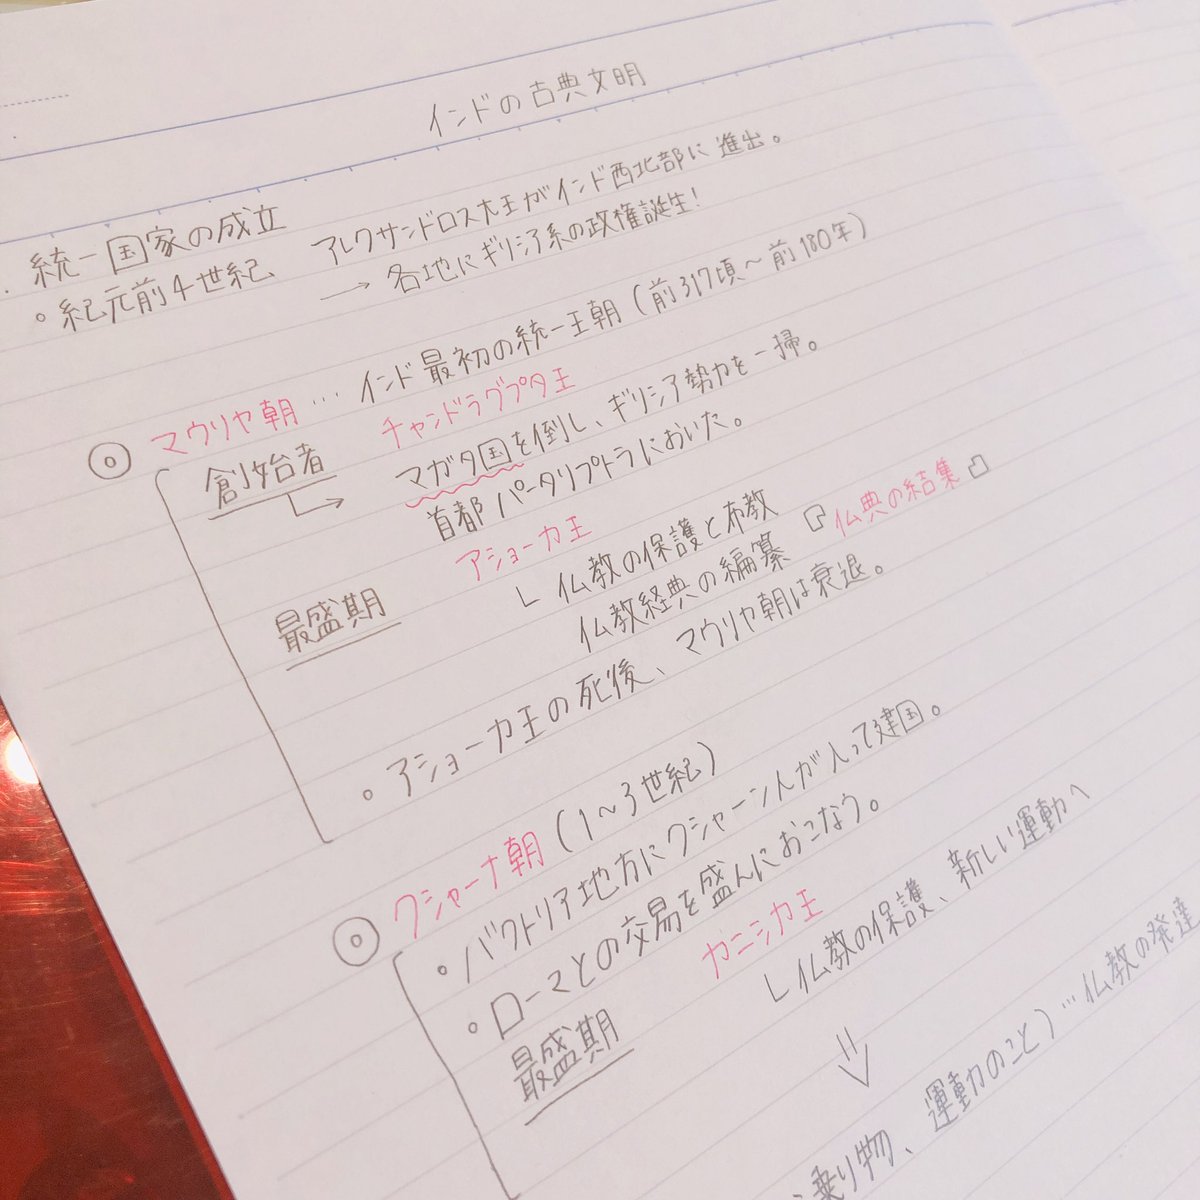 インドの古典文明
. 統一国家の成立
。紀元前4世紀 アレクサンドロス大王がインド西北部に進出。
→ 各地にギリシア系の政権誕生!
◎ マウリヤ朝 … インド最初の統一王朝(前317頃〜前180年)
創始者 チャンドラグプタ王
↳ マガタ国を倒し、ギリシア勢力を一掃。
首都パータリプトラにおいた。
最盛期 アショーカ王
└ 仏教の保護と布教
仏教経典の編纂 『仏典の結集』
。アショーカ王の死後、マウリヤ朝は衰退。
◎ クシャーナ朝(1〜3世紀)
。バクトリア地方にクシャーン人が入って建国。
。ローマとの交易を盛んにおこなう。
最盛期 カニシカ王
└ 仏教の保護、新しい運動へ
⇓
乗り物、運動のこと)…仏教の発達